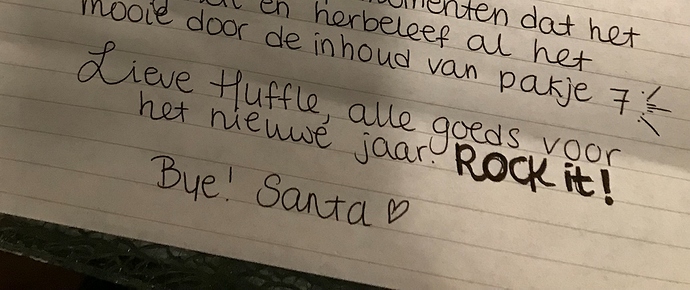 en momenten dat het
mooie door en herbeleef al het
de inhoud van pakje 7
Lieve Huffle, alle goeds voor
het nieuwe jaar! Rock it!
Bye! Santa ♡